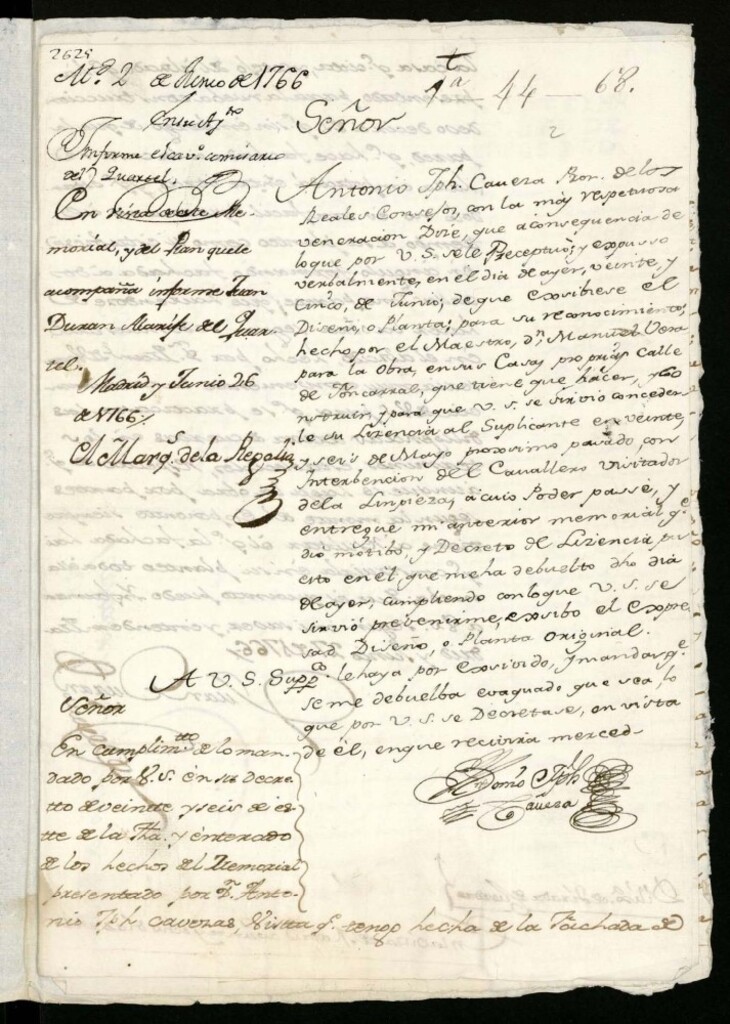 2625
Md. 2 de Junio de 1766
En su Ayto
1-44-68.
2
Señor
Informe el cavo. comisario
del Quartel.
En vista de este Me-
morial, y del Plan que le
acompaña informe Juan
Duran Alarife del Quar-
tel.
Madrid y Junio 26
de 1766,
El Marqs. de la Regalia
Antonio Jph. Caveza Por. de los
Reales Consejos, con la maỹ respetuosa
veneracion Dize, que a consequencia de
loque por V. S. sele Preceptuó; y expusso
verbalmente, en el dia de ayer, veinte, y
cinco, de Junio; de que exsibiese el
Diseño, o Planta; para su reconocimiento;
hecho por el Maestro, dn. Manuel Vera
para la Obra, en sus Casas propias Calle
de Foncarral, que tiene que hacer, y co
nstruir; y para que V. S. se sirvio conceder-
le su Lizencia al Suplicante en veinte,
y seis de Mayo proximo pasado, con
Interbencion del Cavallero Visitador
dela Linpieza, a cuio Poder passé, y
entregue mi anterior memorial qe.
dio motibo, y Decreto de Lizencia pu
esto en él, que me ha debuelto dho dia
de ayer; cumpliendo con loque V. S. se
sirvió prebenirme, exsibo el expre
sado Diseño, o Planta Original.
A V. S. Suppco. le haya por exsivido, y mandar qe.
se me debuelba evaquado que sea, lo
que por V. S. se Decretase, en vista
de él, en que recivira merced-
Antonio Jph
Caveza
Señor
En cumplimto. de lo man-
dado por V. S. en su decre-
tto de veinte y seis de es-
tte de la fha. y enterado
de los hechos del Memorial
presentado por Dn. Anto-
nio Jph. Cavezas, Vista qe. tengo hecha de la Fachada de